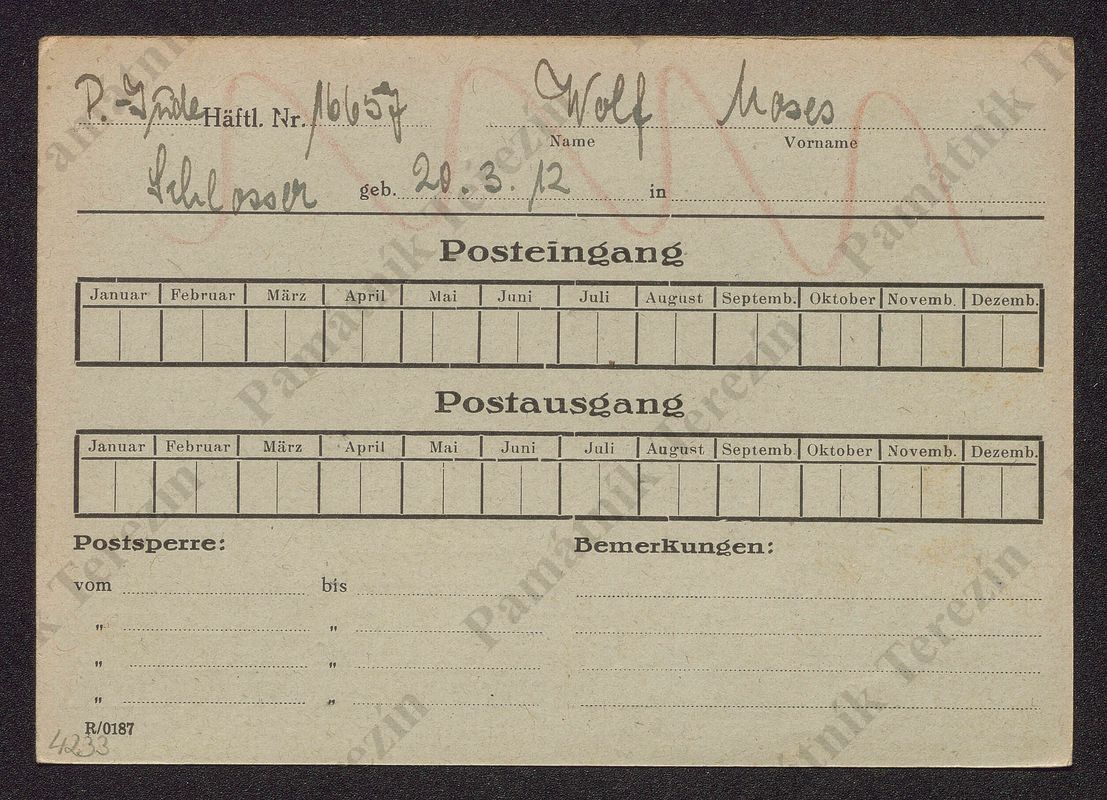 P.-Jude Häftl. Nr. 16657 Wolf Moses
Name Vorname
Schlosser geb. 20.3.12 in
Posteingang
Januar Februar März April Mai Juni Juli August Septemb. Oktober Novemb. Dezemb.
Postausgang
Januar Februar März April Mai Juni Juli August Septemb. Oktober Novemb. Dezemb.
Postsperre: Bemerkungen:
vom bis
" "
" "
" "
R/0187
4233
Památník Terezín